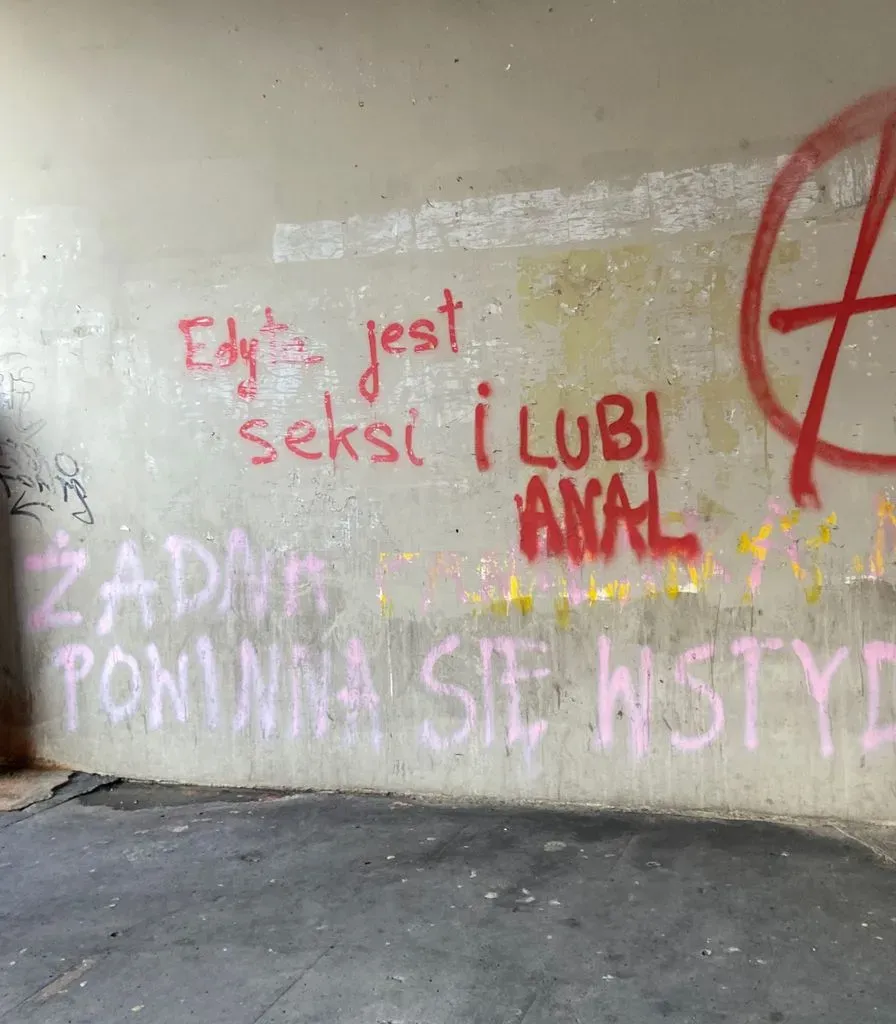 Edyta jest
seksi i LUBI
ANAL
ŻADNA
POWINNA SIĘ WSTYD